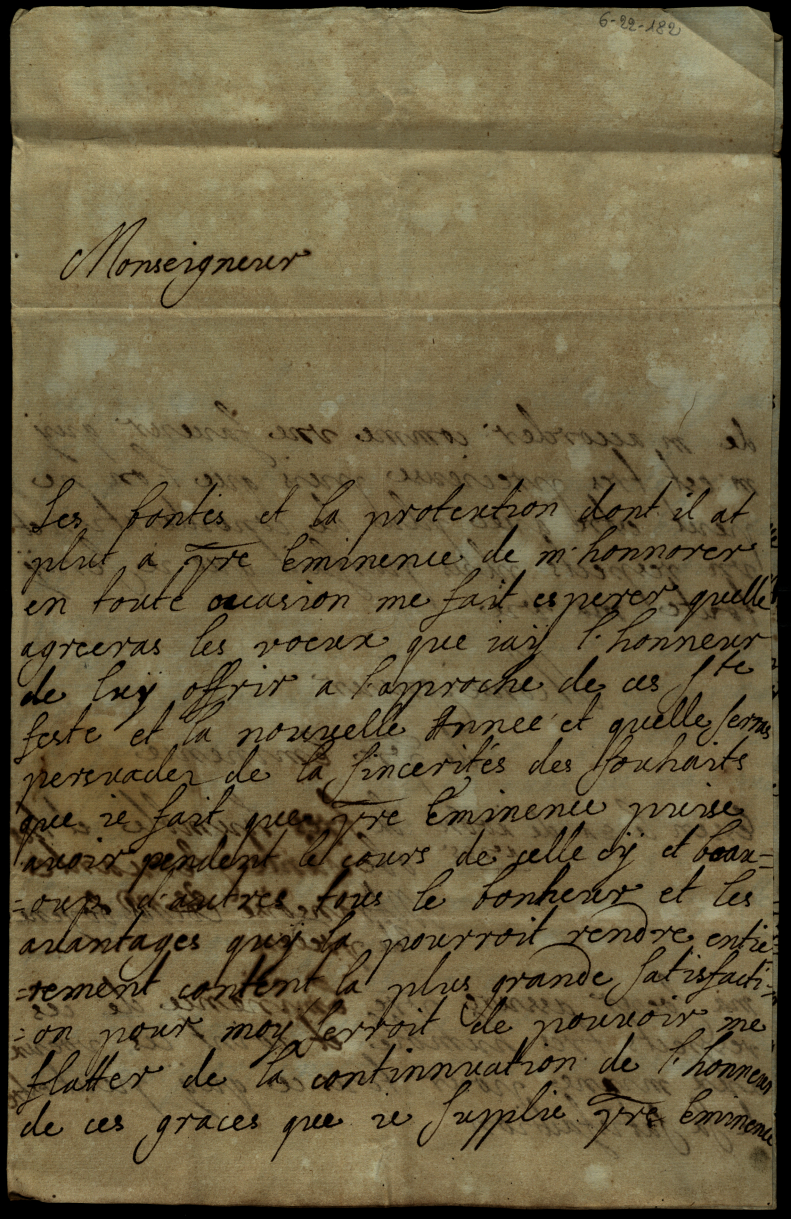 6-22-182
Monseigneur
Les bontés et la protextion dont il at
plut a vre Eminence de m'honnorer
en toute ocasion me fait esperer quelle
agreeras les voeux que iaij l'honneur
de luy offrir a l'approche de ces Ste
feste et la nouvelle Année et quelle serras
persuader de la sincerités des souhaits
que ie fait que vre Eminence puise
avoir pendent le cours de celle cij et beau=
=oup d'autres tous le bonheur et les
avantages quij la pourroit rendre entie=
=rement content la plus grande satisfacti=
=on pour moy serroit de pouvoir me
flatter de la continnuation de l'honneur
de ces graces que ie supplie vre Eminence